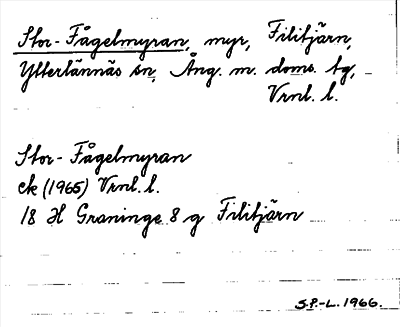 Stor-Fågelmyran, myr, Filitjärn,
Ytterlännäs sn, Ång. m. doms. tg,
Vrnl. l.
Stor-Fågelmyran
ek (1965) Vrnl. l.
18 H Graninge 8 g Filitjärn
S.P.-L. 1966.